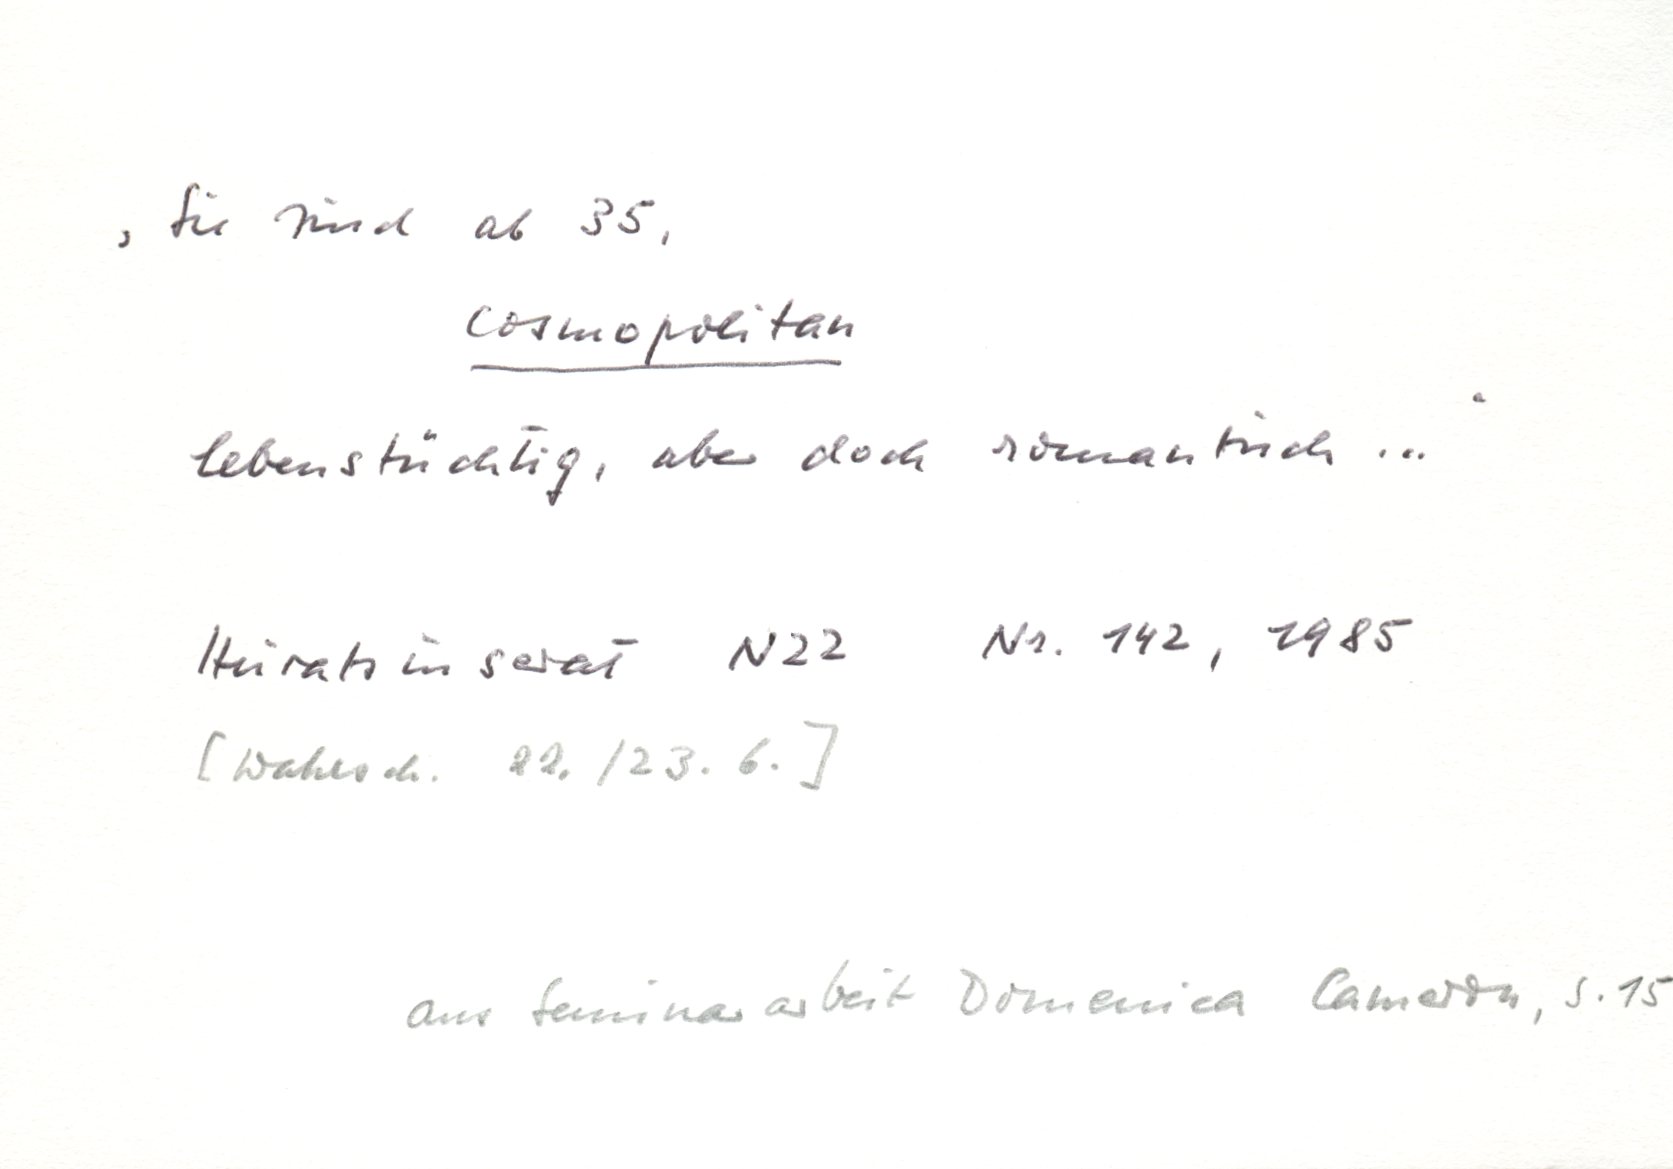 „Sie sind ab 35,
cosmopolitan
lebenstüchtig, aber doch romantisch ..."
Heiratsinserat NZZ Nr. 142, 1985
[Wahrsch. 22./23. 6.]
aus Seminararbeit Domenica Cameron, S. 15